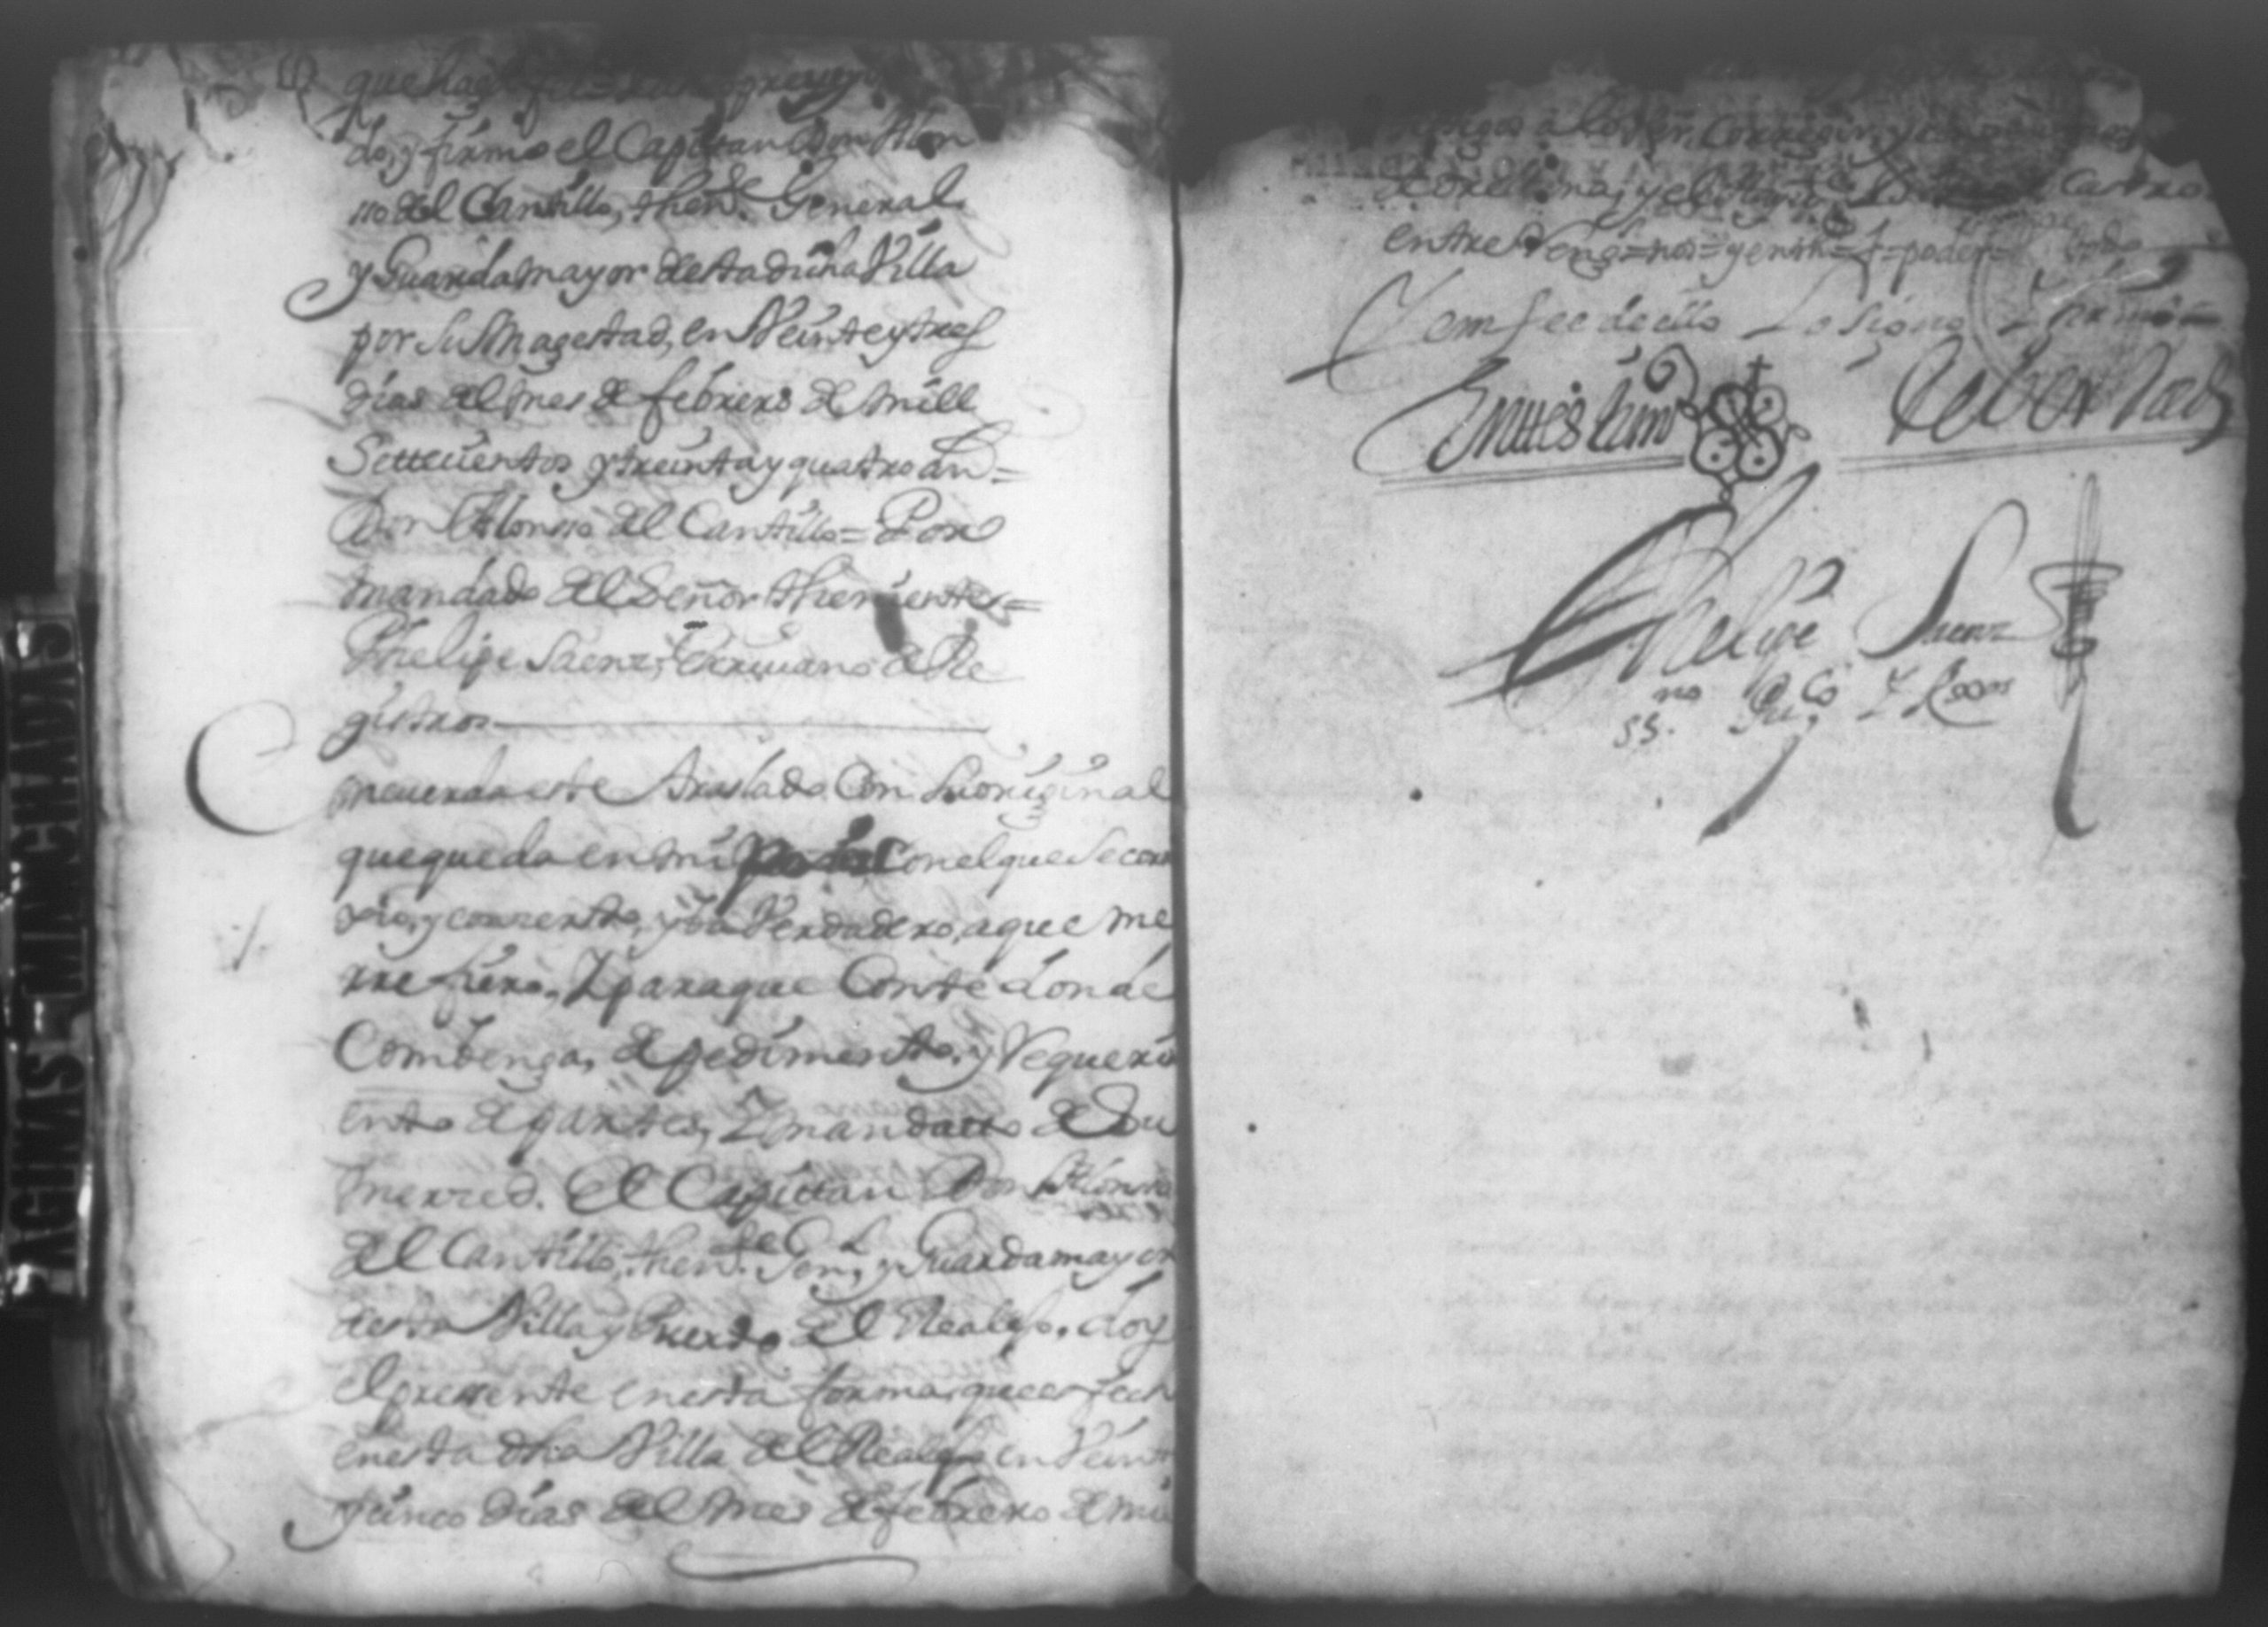 do, y firmo el Capitan Don Alon
sso del Cantillo, then.te General
y Guardamayor desta dicha Villa
por Su Magestad, en Veinte y tres
dias del mes de febrero de mill
Settecientos y treinta y quatro añ.s=
Don Alonsso del Cantillo= Por
mandado del Señor theniente=
Phelipe Saenz, Escriuano de Re
gistros
Concuerda este traslado Con Su original
que queda en mi poder Con el que Se corri
xio, y conzerto, y ba Verdadero, a que me
rrefiero, Y para que Conste donde
Combenga, de pedimento, y Requerim
ento de partes, Y mandatto de Su
merced. El Capittan Don Alonsso
del Cantillo, then.te Gen.l y Guardamayor
desta Villa y Puerto del Realejo, doy
el pressente en esta forma, que es fech
en esta dha Villa del Realejo en Veint
y sinco dias del mes de febrero de mil
testigos Corregir, y
Orellana, y el Castro
entre Reng.s= nos= y enm.do= poder=
Y em fee de ello Lo Signo Y firmo=
En ttestim.o de Verdad
Phelipe Saenz
ss.no Pu.co Y Rexos
PAGINAS MANCHADAS